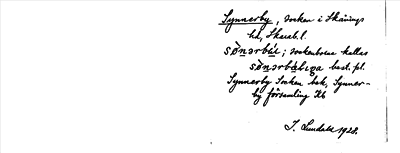 Synnerby, socken i Skånings
hd, Skarab.l.
sønərbùi; sockenborna kallas
sønərbùbona best. pl.
Synnerby Socken bek, Synner-
by församling Kb
I. Lundahl 1928.